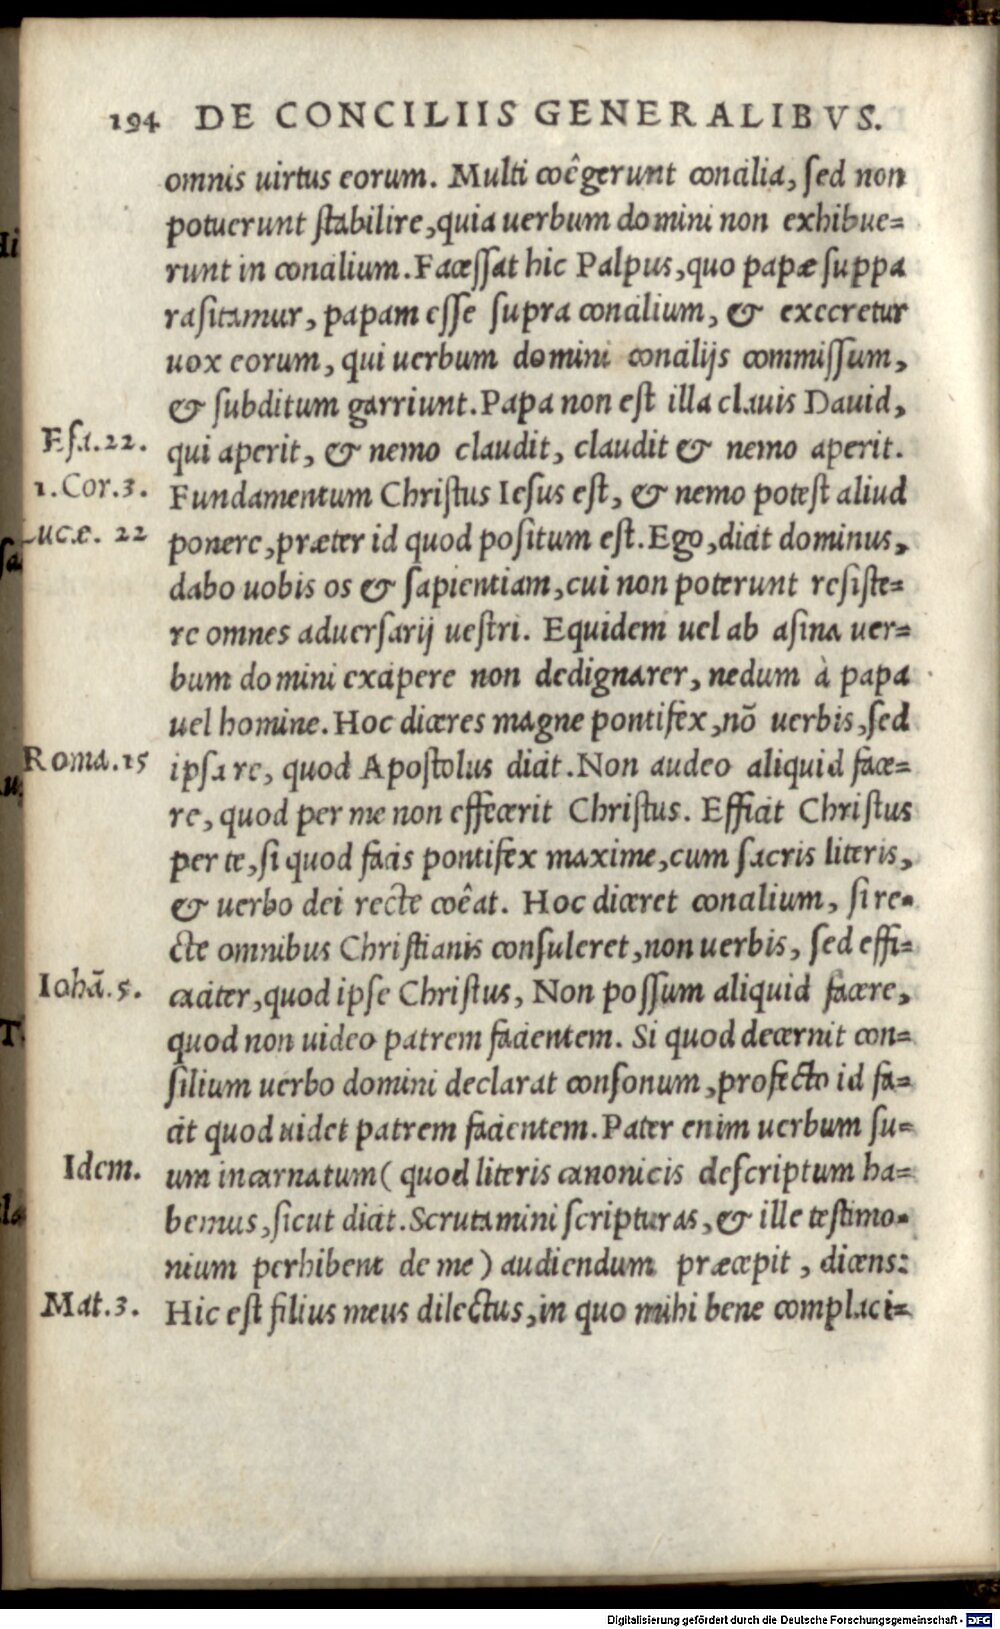 194 DE CONCILIIS GENERALIBVS.
omnis uirtus eorum. Multi coêgerunt concilia, sed non
potuerunt stabilire, quia uerbum domini non exhibue=
runt in concilium. Facessat hic Palpus, quo papæ suppa
rasitamur, papam esse supra concilium, & execretur
uox eorum, qui uerbum domini concilijs commissum,
& subditum garriunt. Papa non est illa clauis Dauid,
Esa.22. qui aperit, & nemo claudit, claudit & nemo aperit.
1.Cor.3. Fundamentum Christus Iesus est, & nemo potest aliud
Lucæ. 22 ponere, præter id quod positum est. Ego, dicit dominus,
dabo uobis os & sapientiam, cui non poterunt resiste=
re omnes aduersarij uestri. Equidem uel ab asina uer=
bum domini excipere non dedignarer, nedum à papa
uel homine. Hoc diceres magne pontifex, nō uerbis, sed
Roma.15 ipsa re, quod Apostolus dicit. Non audeo aliquid face=
re, quod per me non effecerit Christus. Efficit Christus
per te, si quod facis pontifex maxime, cum sacris literis,
& uerbo dei recte coêat. Hoc diceret concilium, si re=
cte omnibus Christianis consuleret, non uerbis, sed effi=
Iohā.5. caciter, quod ipse Christus, Non possum aliquid facere,
quod non uideo patrem facientem. Si quod decernit con=
silium uerbo domini declarat consonum, profecto id fa=
cit quod uidet patrem facientem. Pater enim uerbum su=
Idem. um incarnatum (quod literis canonicis descriptum ha=
bemus, sicut dicit. Scrutamini scripturas, & ille testimo=
nium perhibent de me) audiendum præcepit, dicens:
Mat.3. Hic est filius meus dilectus, in quo mihi bene complaci=
Digitalisierung gefördert durch die Deutsche Forschungsgemeinschaft - DFG